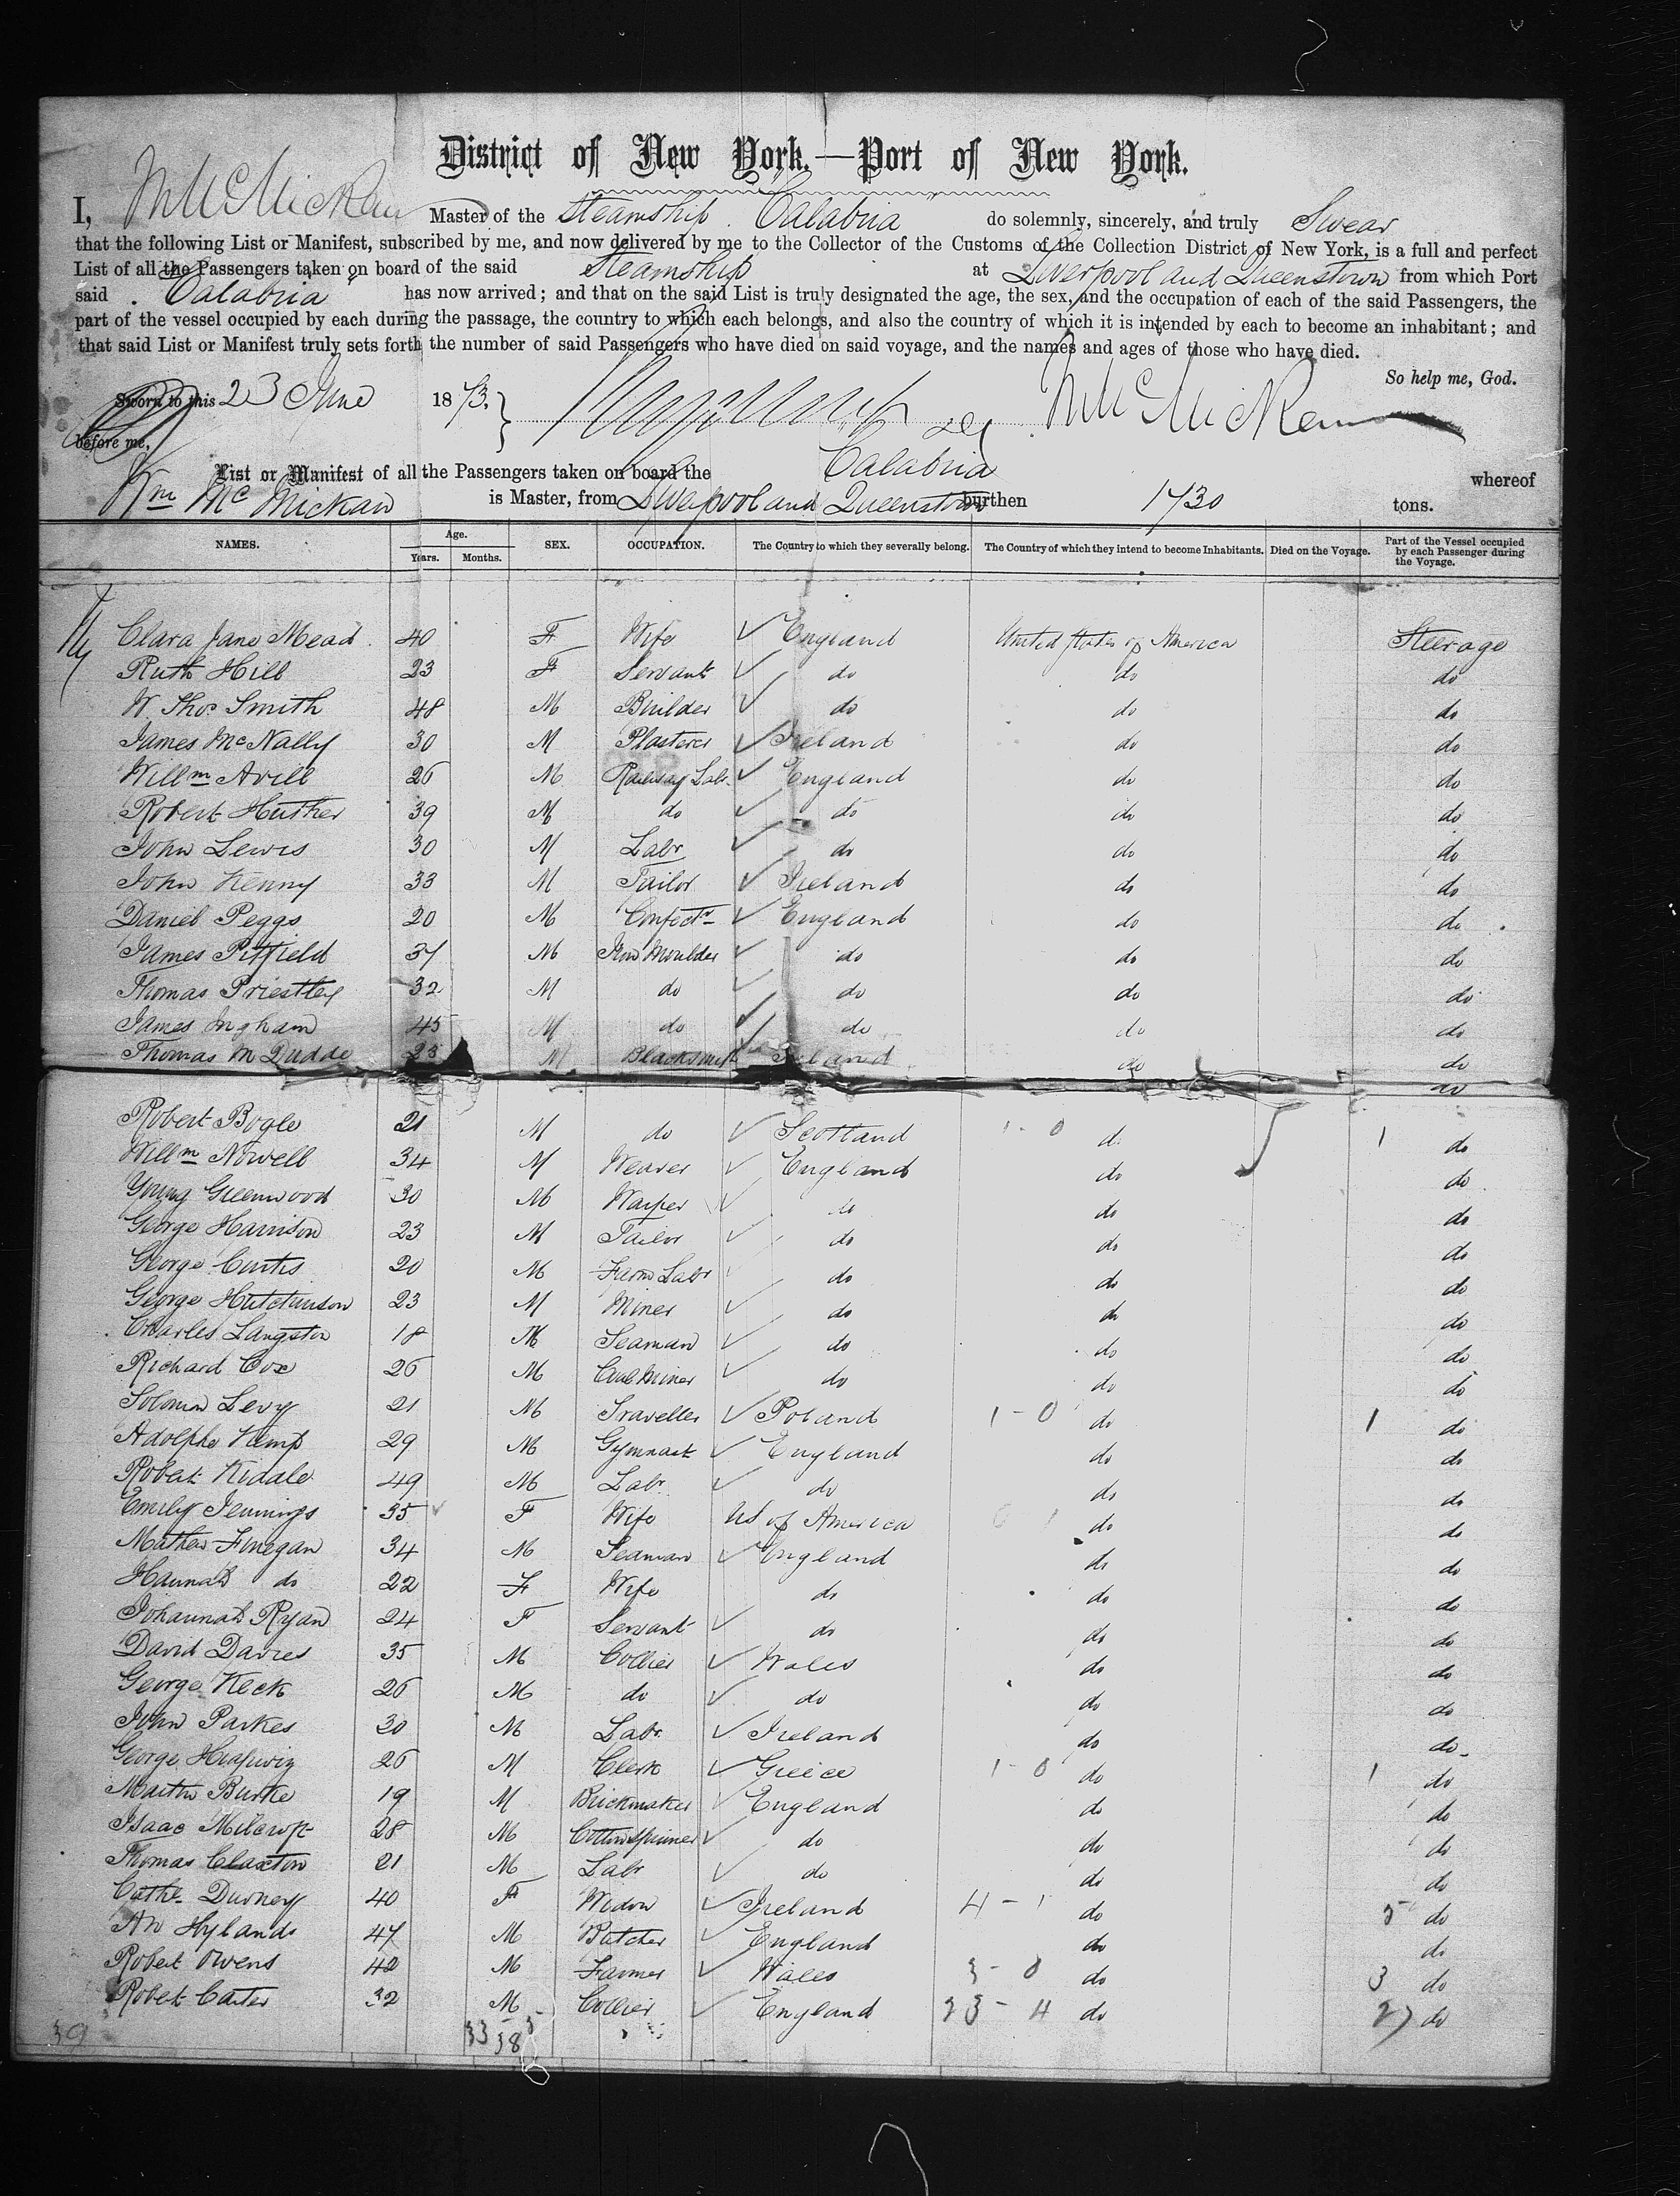 District of New York.—Port of New York.
I, Wm McMickan Master of the Steamship "Calabria" do solemnly, sincerely, and truly Swear
that the following List or Manifest, subscribed by me, and now delivered by me to the Collector of the Customs of the Collection District of New York, is a full and perfect
List of all the Passengers taken on board of the said Steamship at Liverpool and Queenstown from which Port
said "Calabria" has now arrived; and that on the said List is truly designated the age, the sex, and the occupation of each of the said Passengers, the
part of the vessel occupied by each during the passage, the country to which each belongs, and also the country of which it is intended by each to become an inhabitant; and
that said List or Manifest truly sets forth the number of said Passengers who have died on said voyage, and the names and ages of those who have died.
So help me, God.
Sworn to this 23 June 1873. Wm McMickan
before me,
List or Manifest of all the Passengers taken on board the Calabria whereof
Wm McMickan is Master, from Liverpool and Queenstown burthen 1730 tons.
NAMES. Age. Years. Months. SEX. OCCUPATION. The Country to which they severally belong. The Country of which they intend to become Inhabitants. Died on the Voyage. Part of the Vessel occupied by each Passenger during the Voyage.
Clara Jane Mead 40 F Wife England United States of America Steerage
Ruth Hill 23 F Servant do do do
W Thos Smith 48 M Builder do do do
James McNally 30 M Plasterer Ireland do do
Willm Avill 26 M Railway Labr England do do
Robert Huther 39 M do do do do
John Lewis 30 M Labr do do do
John Kenny 33 M Tailor Ireland do do
Daniel Peggs 20 M Confectr England do do
James Pitfield 37 M Iron Moulder do do do
Thomas Priestley 32 M do do do do
James Ingham 45 M do do do do
Thomas M 23 M Blacksmith Ireland do do
do
Robert Bogle 21 M do Scotland 1-0 do 1 do
Willm Nowell 34 M Weaver England do do
Young Greenwood 30 M Warper do do do
George Harrison 23 M Tailor do do do
George Curtis 20 M Farm Labr do do do
George Hutchinson 23 M Miner do do do
Charles Langston 18 M Seaman do do do
Richard Cox 26 M Coal Miner do do do
Solomon Levy 21 M Traveller Poland 1-0 do 1 do
Adolphe Kemp 29 M Gymnast England do do
Robert Kiddle 49 M Labr do do do
Emily Jennings 35 F Wife US of America 0 1 do do
Mathew Finegan 34 M Seaman England do do
Hannah do 22 F Wife do do do
Johannah Ryan 24 F Servant do do do
David Davies 35 M Collier Wales do do
George Keck 26 M do do do do
John Parkes 30 M Labr Ireland do do
George 26 M Clerk Greece 1-0 do 1 do
Martin Burke 19 M Brickmaker England do do
Isaac Milcroft 28 M Cotton Spinner do do do
Thomas Claxton 21 M Labr do do do
Cathe Durney 40 F Widow Ireland 4-1 do 5 do
An Hylands 47 M Butcher England do do
Robert Owens 42 M Farmer Wales 3-0 do 3 do
Robert Carter 32 M Collier England 23-4 do 27 do
39 33 5 38